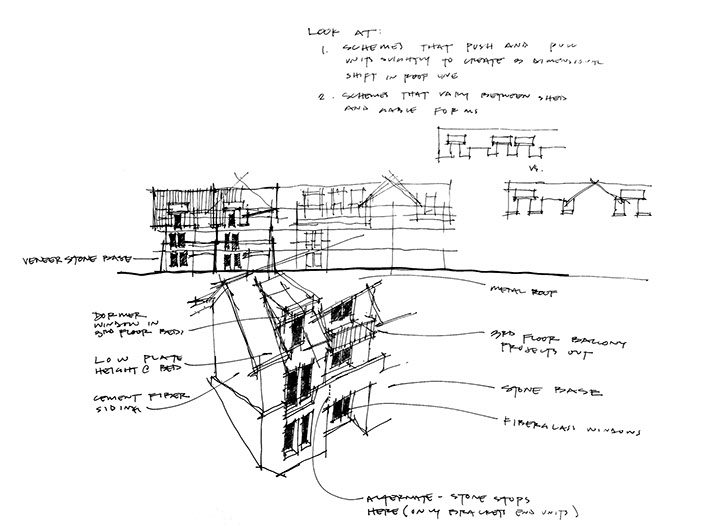 LOOK AT:
1. SCHEMES THAT PUSH AND PULL
UNITS SLIGHTLY TO CREATE A DIMENSIONAL
SHIFT IN ROOF LINE
2. SCHEMES THAT VARY BETWEEN SHED
AND GABLE FORMS
VS.
VENEER STONE BASE
METAL ROOF
DORMER
WINDOW IN
3RD FLOOR BEDS
3RD FLOOR BALCONY
PROJECTS OUT
LOW PLATE
HEIGHT @ BED
STONE BASE
CEMENT FIBER
SIDING
FIBERGLASS WINDOWS
ALTERNATE - STONE STOPS
HERE (ONLY BRACKETS END UNITS)